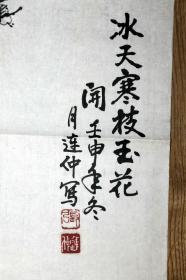 冰天寒枝玉花
開 壬申年冬
月连仲写